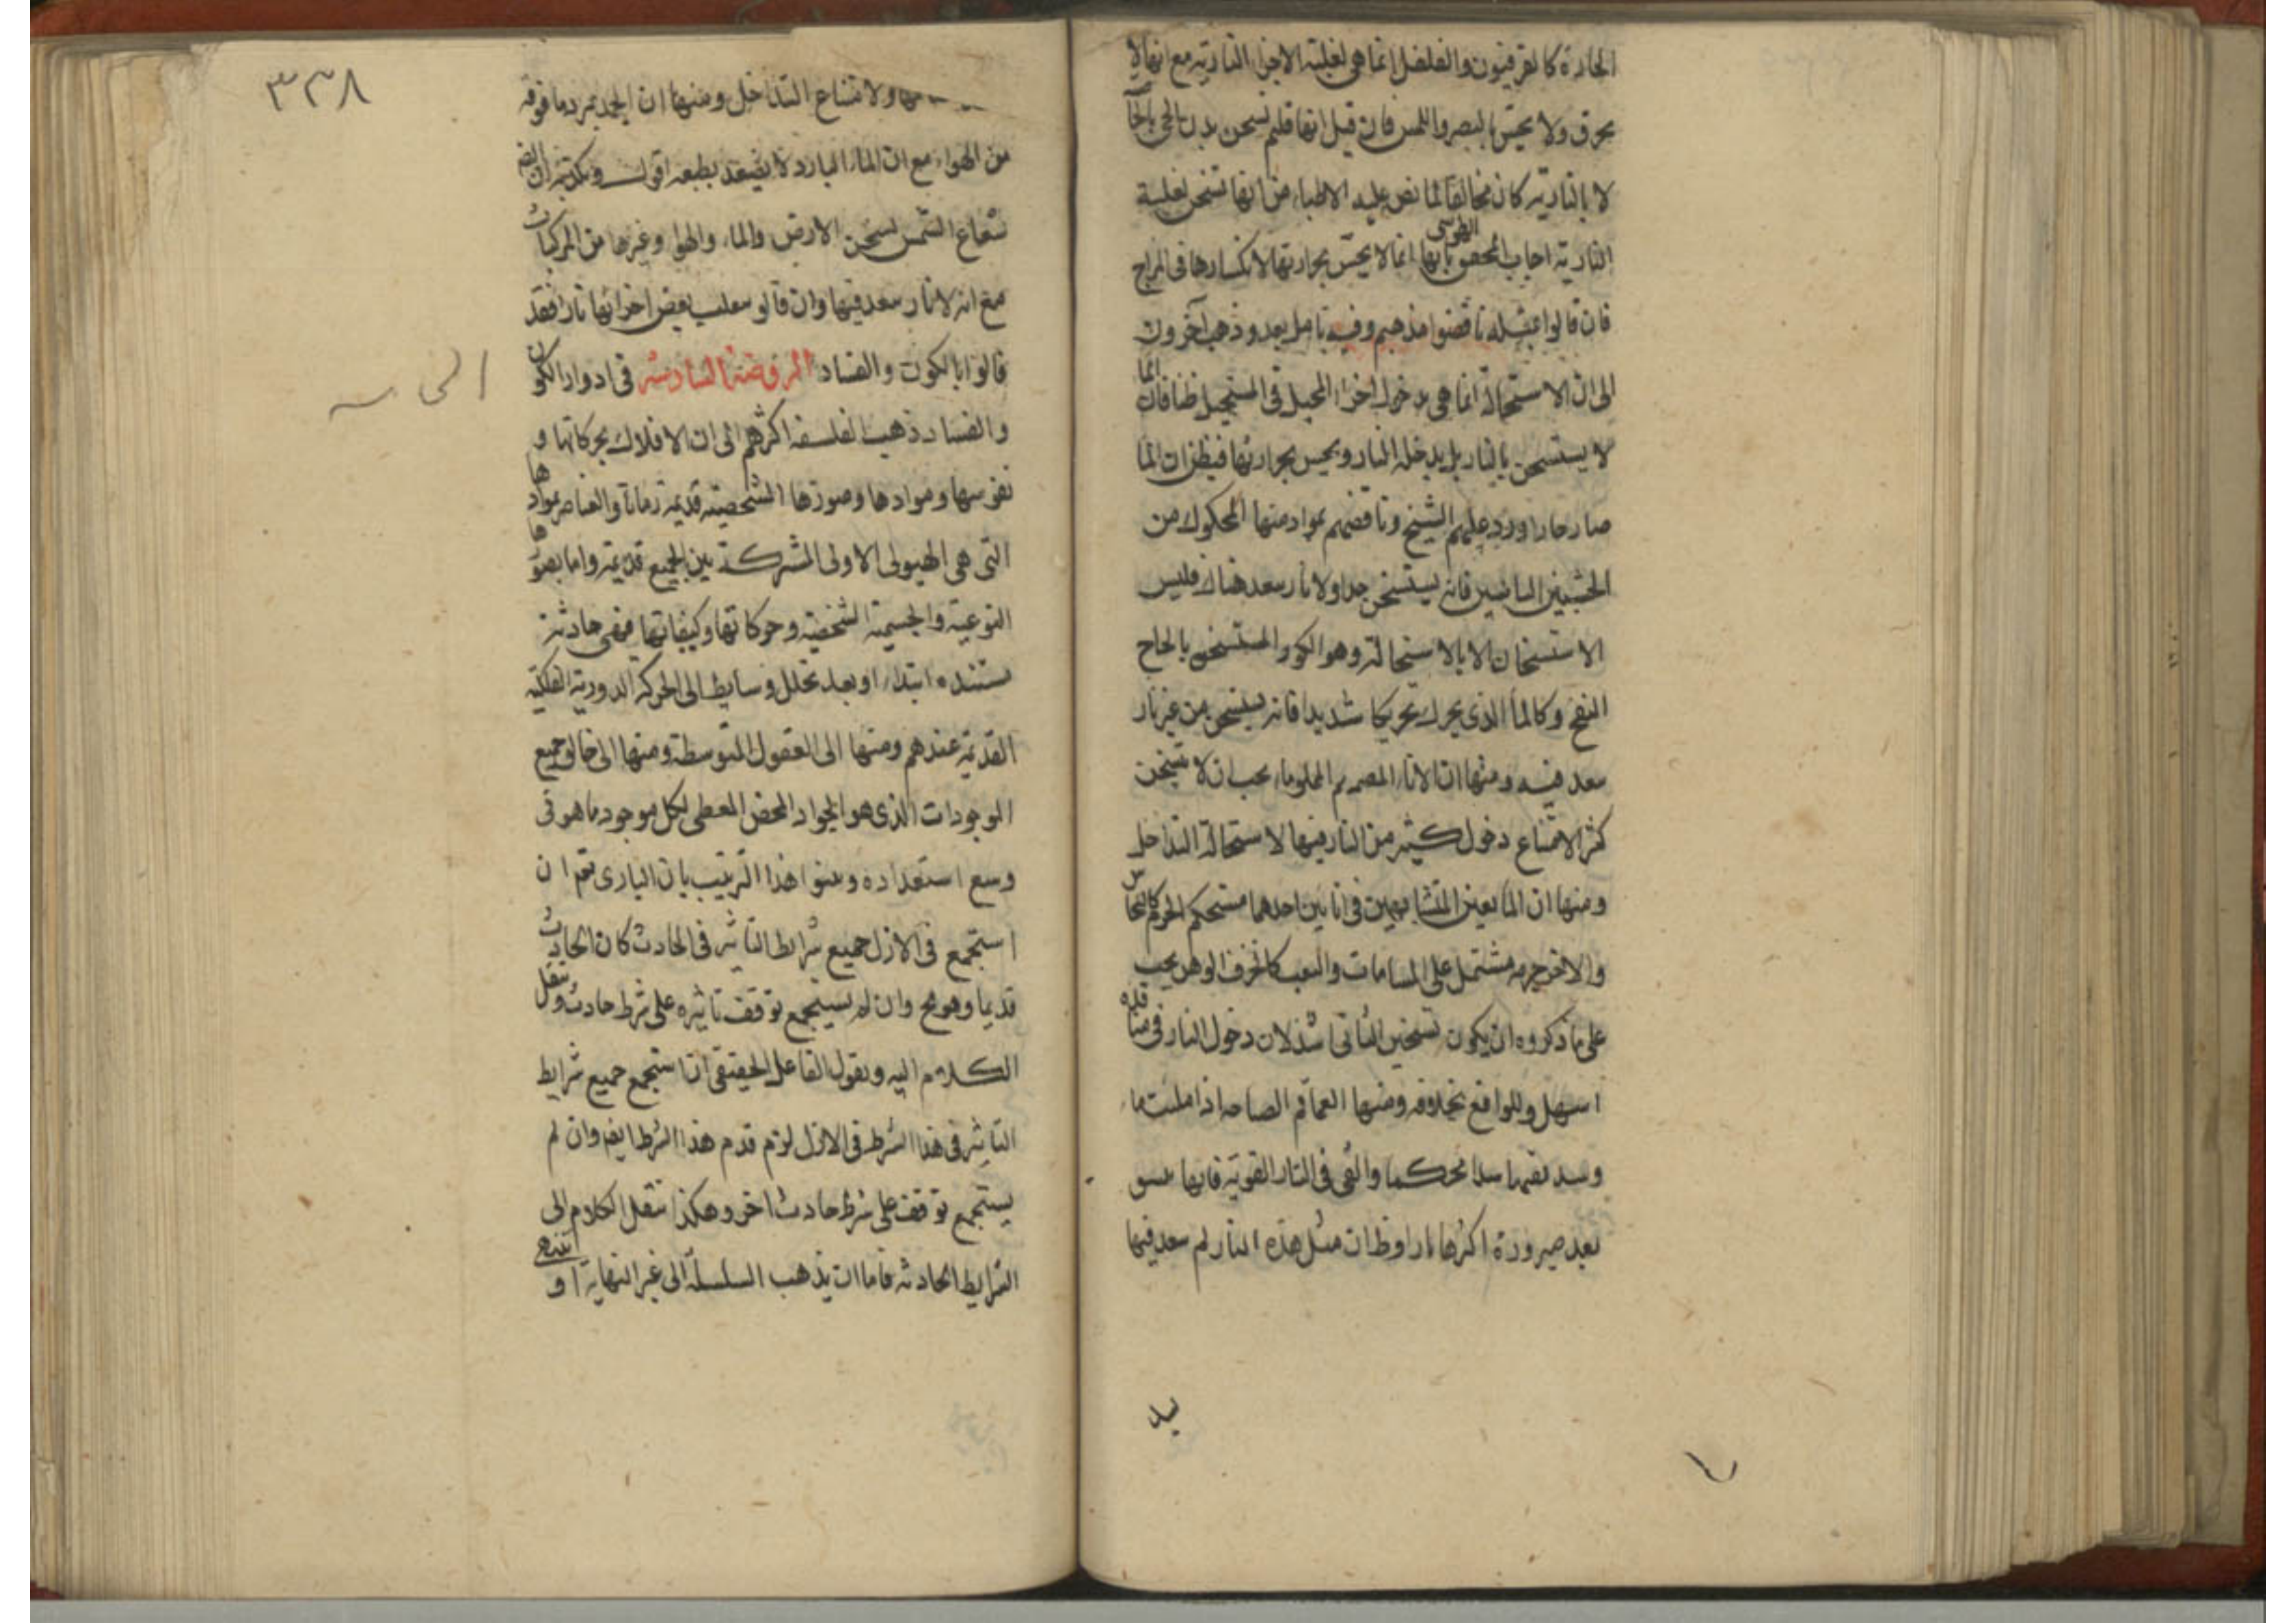 الحارة كالفرفيون والفلفل انما هي لغلبة الاجزاء النارية مع انها لا
يحرق ولا يحس بالبصر واللمس فان قيل انها فلم تسخن بدن الحي بالخا صة
لا بالنارية كان مخالفا لما نص عليه الاطباء من انها تسخن لغلبة
النارية اجاب المحقق الطوسي بانها انما لا يحس بحرارتها لانكسارها في المزاج
فان قالوا بمثله ناقضوا مذهبهم وفيه تامل بعد وذهب آخرون
الى ان الاستحالة انما هي بدخول اجزاء المحيل في المستحيل ظنا فان الما
لا يستسخن بالنار بل يدخله النار ويحس بحرارتها فيظن ان الما
صار حارا ورد عليهم الشيخ وناقضهم بمواد منها المحكوك من
الخشبين اليابسين فانه يستسخن جدا ولا نار سعد هناك فليس
الاستسخان الا بالاستحالة وهو الكور المستسخن بالحاح
النفخ وكالماء الذي يحرك تحريكا شديدا فانه يستسخن من غير نار
سعد فيه ومنها ان الاناء المصمم المملو ماء يجب ان لا تسخن
كثيرا لامتناع دخول كثير من النار فيها لاستحالة التداخل
ومنها ان المايعين المتشابهين في انائين احدهما مستحكم الجرم كالنحاس
والاخر جرمه مشتمل على المسامات والثقب كالخزف الوهن يجب
على ما ذكروه ان يكون تسخين الثاني اشد لان دخول النار في منافذه
اسهل وللواقع بخلافه ومنها القماقم الصياحة اذا ملئت ماء
وسد فمها سدا محكما والقي في النار القوية فانها تنشق
بعد صيرورة اكثرها نارا وظ ان مثل هذه النار لم سعد فيها
يد
٣٣٨
ولامتناع التداخل ومنها ان الجمد يبرد ما فوقه
من الهواء مع ان الماء البارد لا يصعد بطبعه اقول ويكذبهم ايضا ان
شعاع الشمس تسخن الارض والماء والهواء وغيرها من المركبات
مع انه لا نار سعد فيها وان قالو سعلب بعض اجزائها نارا فقد
قالوا بالكون والفساد الروضة السادسة في ادوار الكون
والفساد ذهب الفلسفة اكثرهم الى ان الافلاك بحركاتها و
نفوسها وموادها وصورها الشخصية قديمة زمانا والعناصر بموادها
التي هي الهيولى الاولى المشتركة بين الجميع قديمة واما بصورها
النوعية والجسمية الشخصية وحركاتها وكيفياتها فهي حادثة
مستنده ابتداء او بعد تخلل وسايط الى الحركة الدورية الفلكية
القديمة عندهم ومنها الى العقول المتوسطة ومنها الى خالق جميع
الموجودات الذي هو الجواد المحض المعطي لكل موجود ما هو في
وسع استعداده وبينوا هذا الترتيب بان الباري تعم ان
استجمع في الازل جميع شرايط التاثير في الحادث كان الحادث
قديما وهو مح وان لم يستجمع توقف تاثيره على شرط حادث وننقل
الكلام اليه ونقول الفاعل الحقيقي ان استجمع جميع شرايط
التاثير في هذا الشرط في الازل لزم قدم هذا الشرط ايضا وان لم
يستجمع توقف على شرط حادث اخر وهكذا ننقل الكلام الى
الشرايط الحادثه فاما ان يذهب السلسلة الى غير النهاية او